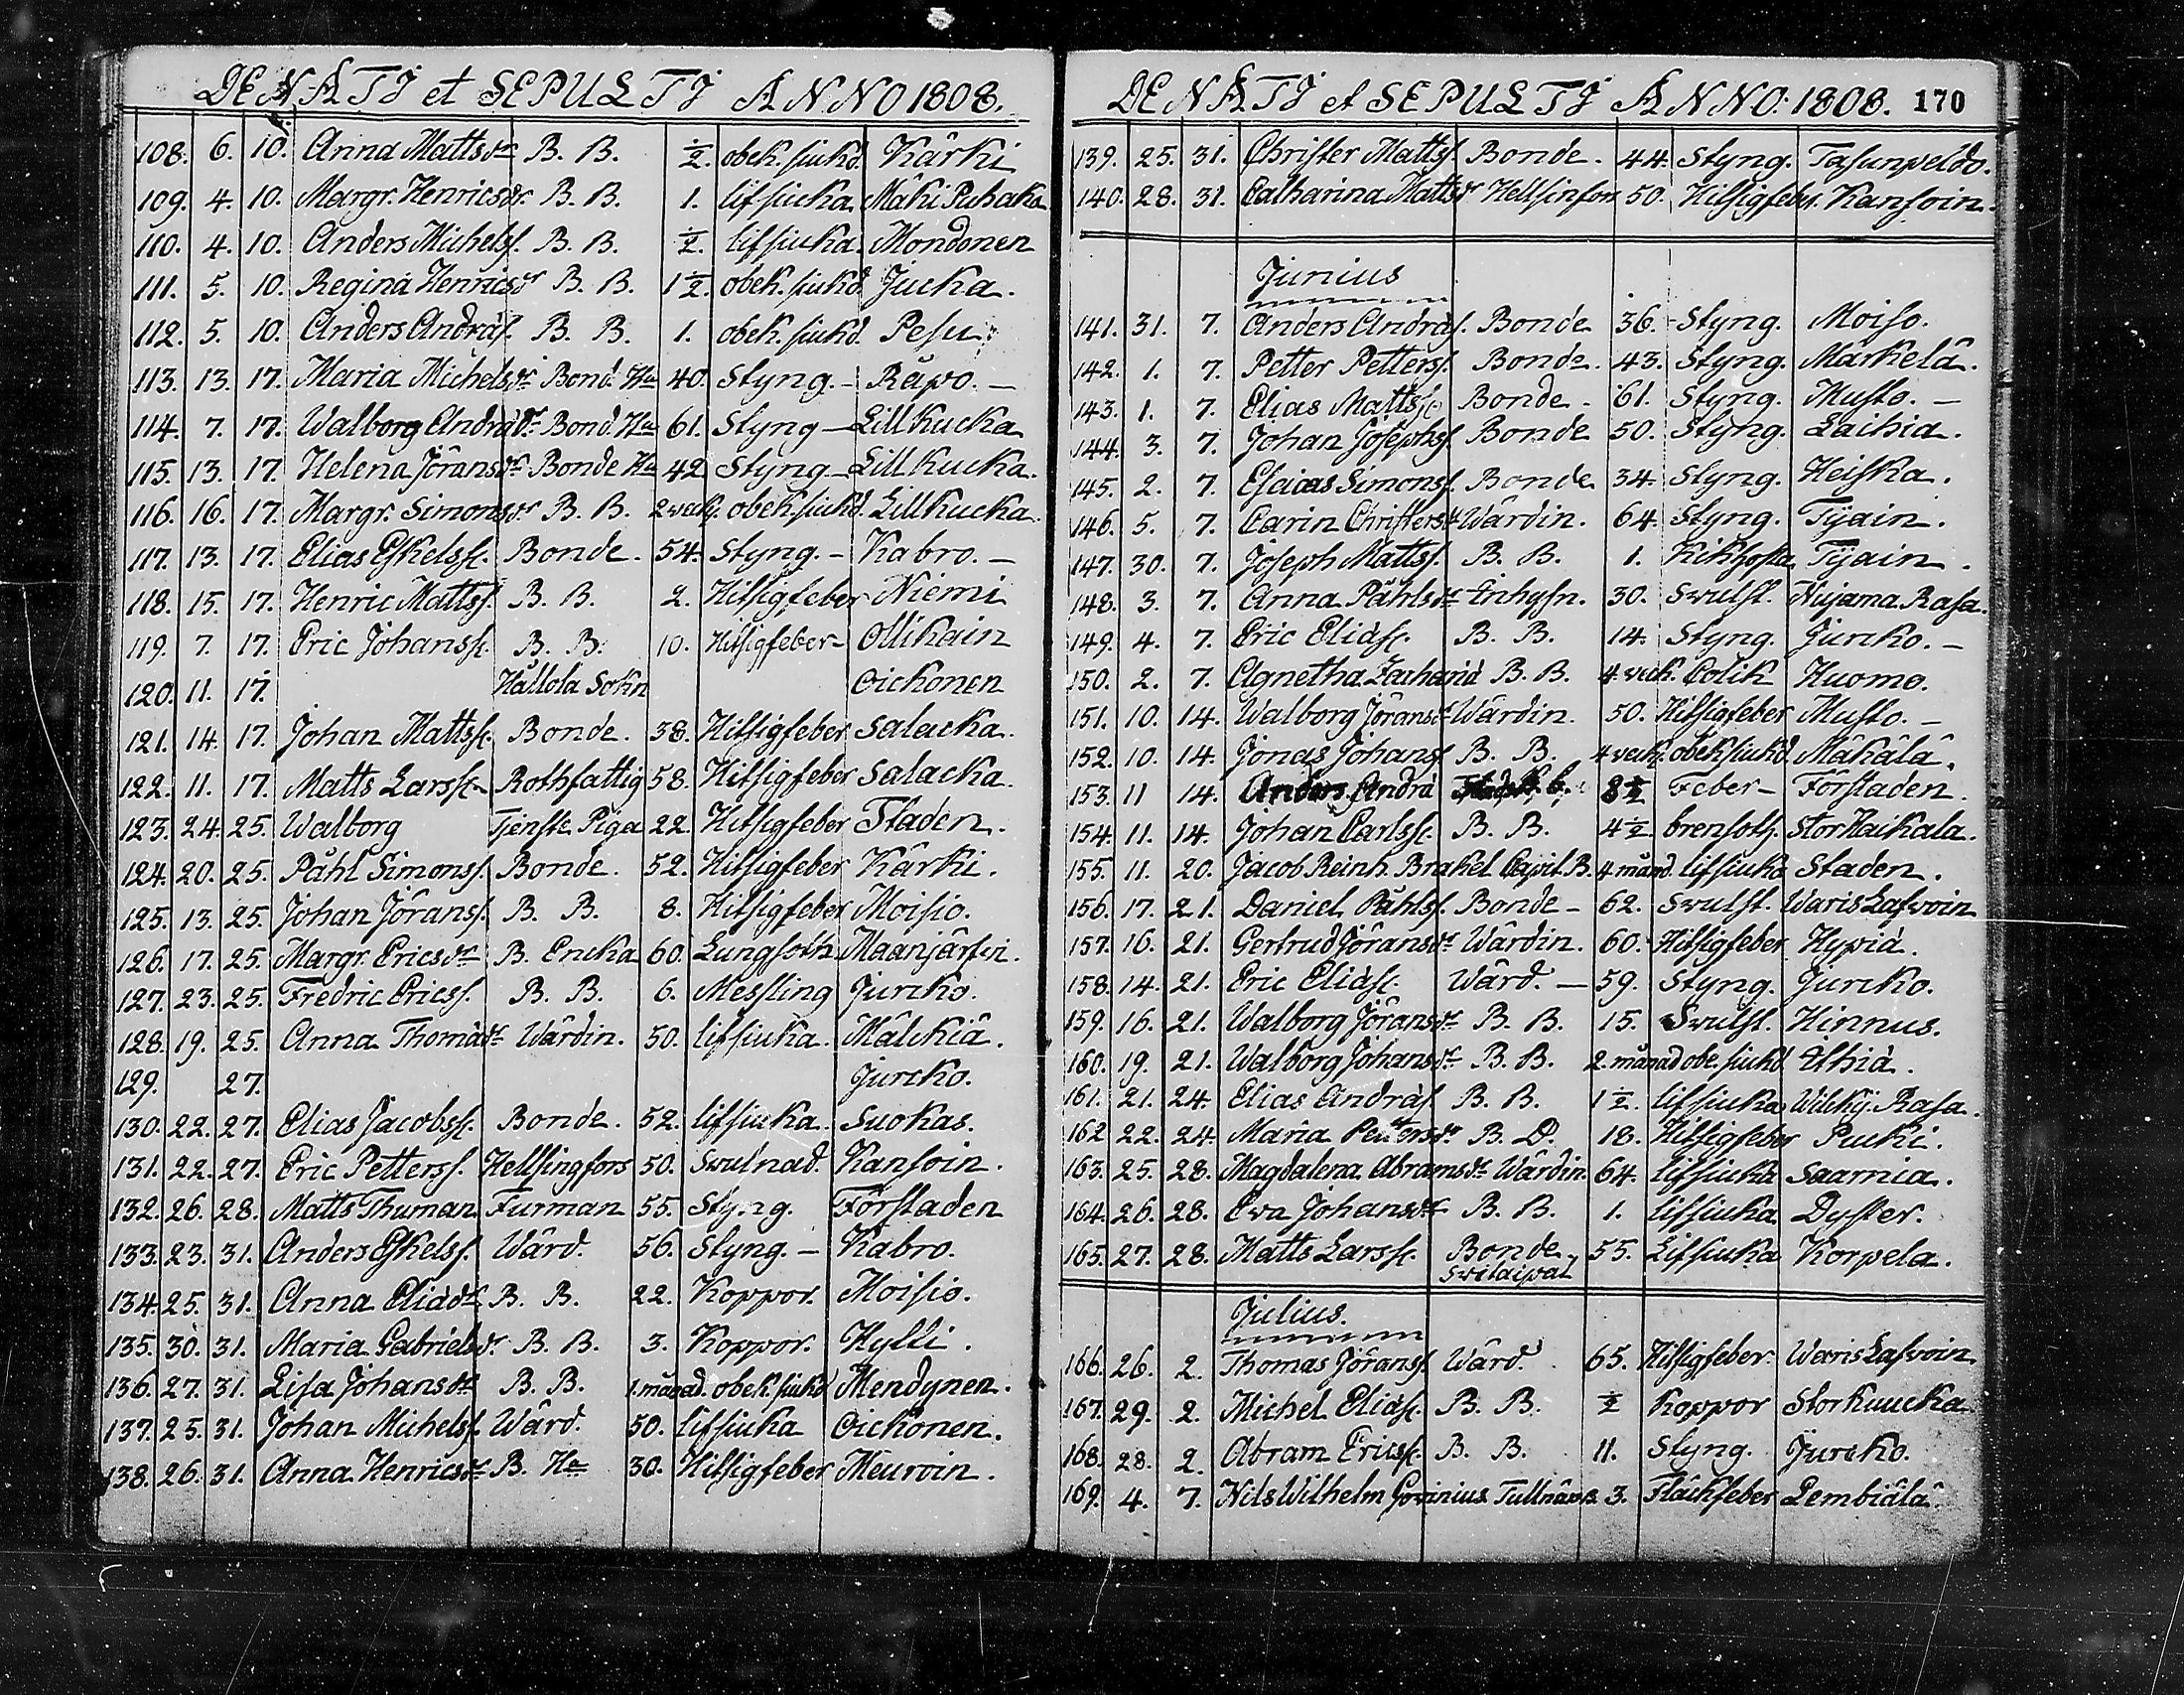 DENATI et SEPULTI ANNO 1808.
108. 6. 10. Anna Mattsdr B. B. ½. obek. siukd. Kärki
109. 4. 10. Margr. Henricsdr. B. B. 1. lifsiuka. Mäki Puhaka
110. 4. 10. Anders Michelss. B. B. ½. lifsiuka. Mondonen
111. 5. 10. Regina Henricsdr B. B. 1½. obek. siukd. Jucka.
112. 5. 10. Anders Andräs. B. B. 1. obek. siukd. Pesu.
113. 13. 17. Maria Michelsdr Bond. Hu 40. Styng. - Räpo. -
114. 7. 17. Walborg Andrädr Bond. Hu 61. Styng - Lill Kucka
115. 13. 17. Helena Jöransdr Bonde Hu 42 Styng - Lill Kucka.
116. 16. 17. Margr. Simonsdr B. B. 2 veck. obek. siukd. Lill Kucka.
117. 13. 17. Elias Eskelss. Bonde. 54. Styng. - Kabro. -
118. 15. 17. Henric Mattss. B. B. 2. Hitsigfeber Niemi
119. 7. 17. Eric Johanss. B. B. 10. Hitsigfeber - Ollikain
120. 11. 17. Hållola Sokn Oickonen
121. 14. 17. Johan Mattss. Bonde. 38. Hitsigfeber Salacka.
122. 11. 17. Matts Larss. Rothfattig 58. Hitsigfeber Salacka.
123. 24. 25. Walborg Tjenste Piga 22. Hitsigfeber Staden.
124. 20. 25. Påhl Simonss. Bonde. 52. Hitsigfeber Kärki.
125. 13. 25. Johan Jöranss. B. B. 8. Hitsigfeber Moisio.
126. 17. 25. Margr. Ericsdr B. Encka 60. Lungsoth Maanjärfvi.
127. 23. 25. Fredric Ericss. B. B. 6. Messling Jurcko.
128. 19. 25. Anna Thomädr Wärdin. 50. lifsiuka. Mälckiä.
129. 27. Jurcko.
130. 22. 27. Elias Jacobss. Bonde. 52. lifsiuka. Suokas.
131. 22. 27. Eric Petterss. Hellsingfors 50. Svulnad. Kansoin.
132. 26. 28. Matts Thuman Furman 55. Styng. Förstaden
133. 23. 31. Anders Eskelss. Wärd. 56. Styng. - Kabro.
134. 25. 31. Anna Eliädr B. B. 22. Koppor. Moisio.
135. 30. 31. Maria Gabrielsdr. B. B. 3. Koppor. Hylli.
136. 27. 31. Lisa Johansdr B. B. 1. månad. obek. siukd Mendynen.
137. 25. 31. Johan Michelss Wärd. 50. lifsiuka Oickonen.
138. 26. 31. Anna Henricsdr B. Hu 30. Hitsigfeber Meuroin.
DENATI et SEPULTI ANNO. 1808. 170
139. 25. 31. Christer Mattss. Bonde. 44. Styng. Tasunpeldo.
140. 28. 31. Catharina Mattsdr Hellsinfors 50. Hitsigfeber. Kansoin.
Junius
141. 31. 7. Anders Andräs. Bonde 36. Styng. Moiso.
142. 1. 7. Petter Petterss. Bonde. 43. Styng. Märkelä.
143. 1. 7. Elias Mattss. Bonde. 61. Styng. Musto. -
144. 3. 7. Johan Josephss. Bonde 50. Styng. Laihia.
145. 2. 7. Esaias Simonss. Bonde 34 Styng. Heiska.
146. 5. 7. Carin Christersdr Wärdin. 64 Styng. Tijain.
147. 30. 7. Joseph Mattss. B. B. 1. Kikhosta Tijain.
148. 3. 7. Anna Påhlsdr Inhysn. 30. Svulst. Nujama Rasa.
149. 4. 7. Eric Eliäss. B. B. 14. Styng. Jurcko. -
150. 2. 7. Agnetha Zachariä B. B. 4. veck. Colik Huomo.
151. 10. 14. Walborg Jöransdr Wärdin. 50. Hitsigfeber Musto. -
152. 10. 14. Jonas Johanss B. B. 4 veck. obek siukd. Mäkälä.
153. 11 14. Anders Andrä 8½ Feber - Förstaden.
154. 11. 14. Johan Carlss. B. B. 4½ brensots. Stor Raikala.
155. 11. 20. Jacob Reinh. Brakel Capit. B. 4 månd. lifsiuka Staden.
156. 17. 21. Daniel Påhlss. Bonde - 62. Svulst. Waris Lasvoin
157. 16. 21. Gertrud Jöransdr Wärdin. 60. Hitsigfeber Hypiä.
158. 14. 21. Eric Eliäss. Wärd. - 59. Styng. Jurcko.
159. 16. 21. Walborg Jöransdr B. B. 15. Svulst. Hinnus.
160. 19. 21. Walborg Johansdr B. B. 2. månad obe. siukd Ithiä.
161. 21. 24. Elias Andräs. B. B. 1½. lifsiuka Wilckj. Rasa.
162 22. 24. Maria Pettersdr B. D. 18. Hitsigfeber Pucki.
163. 25. 28. Magdalena Abramsdr Wärdin. 64. lifsiuka Saarnia.
164. 26. 28. Eva Johansdr B. B. 1. lifsiuka Dyster.
165. 27. 28. Matts Larss. Bonde Svilaipal 55. Lifsiuka Korpela.
Julius.
166. 26. 2. Thomas Jöranss. Wärd. 65. Hitsigfeber. Waris Lasvoin
167. 29. 2. Michel Eliäss. B. B. ½ Koppor Stor Kuucka
168. 28. 2. Abram Ericss. B. B. 11. Styng. Jurcko.
169. 4. 7. Nils Wilhelm Govinius 3. Fläckfeber Lembiälä.